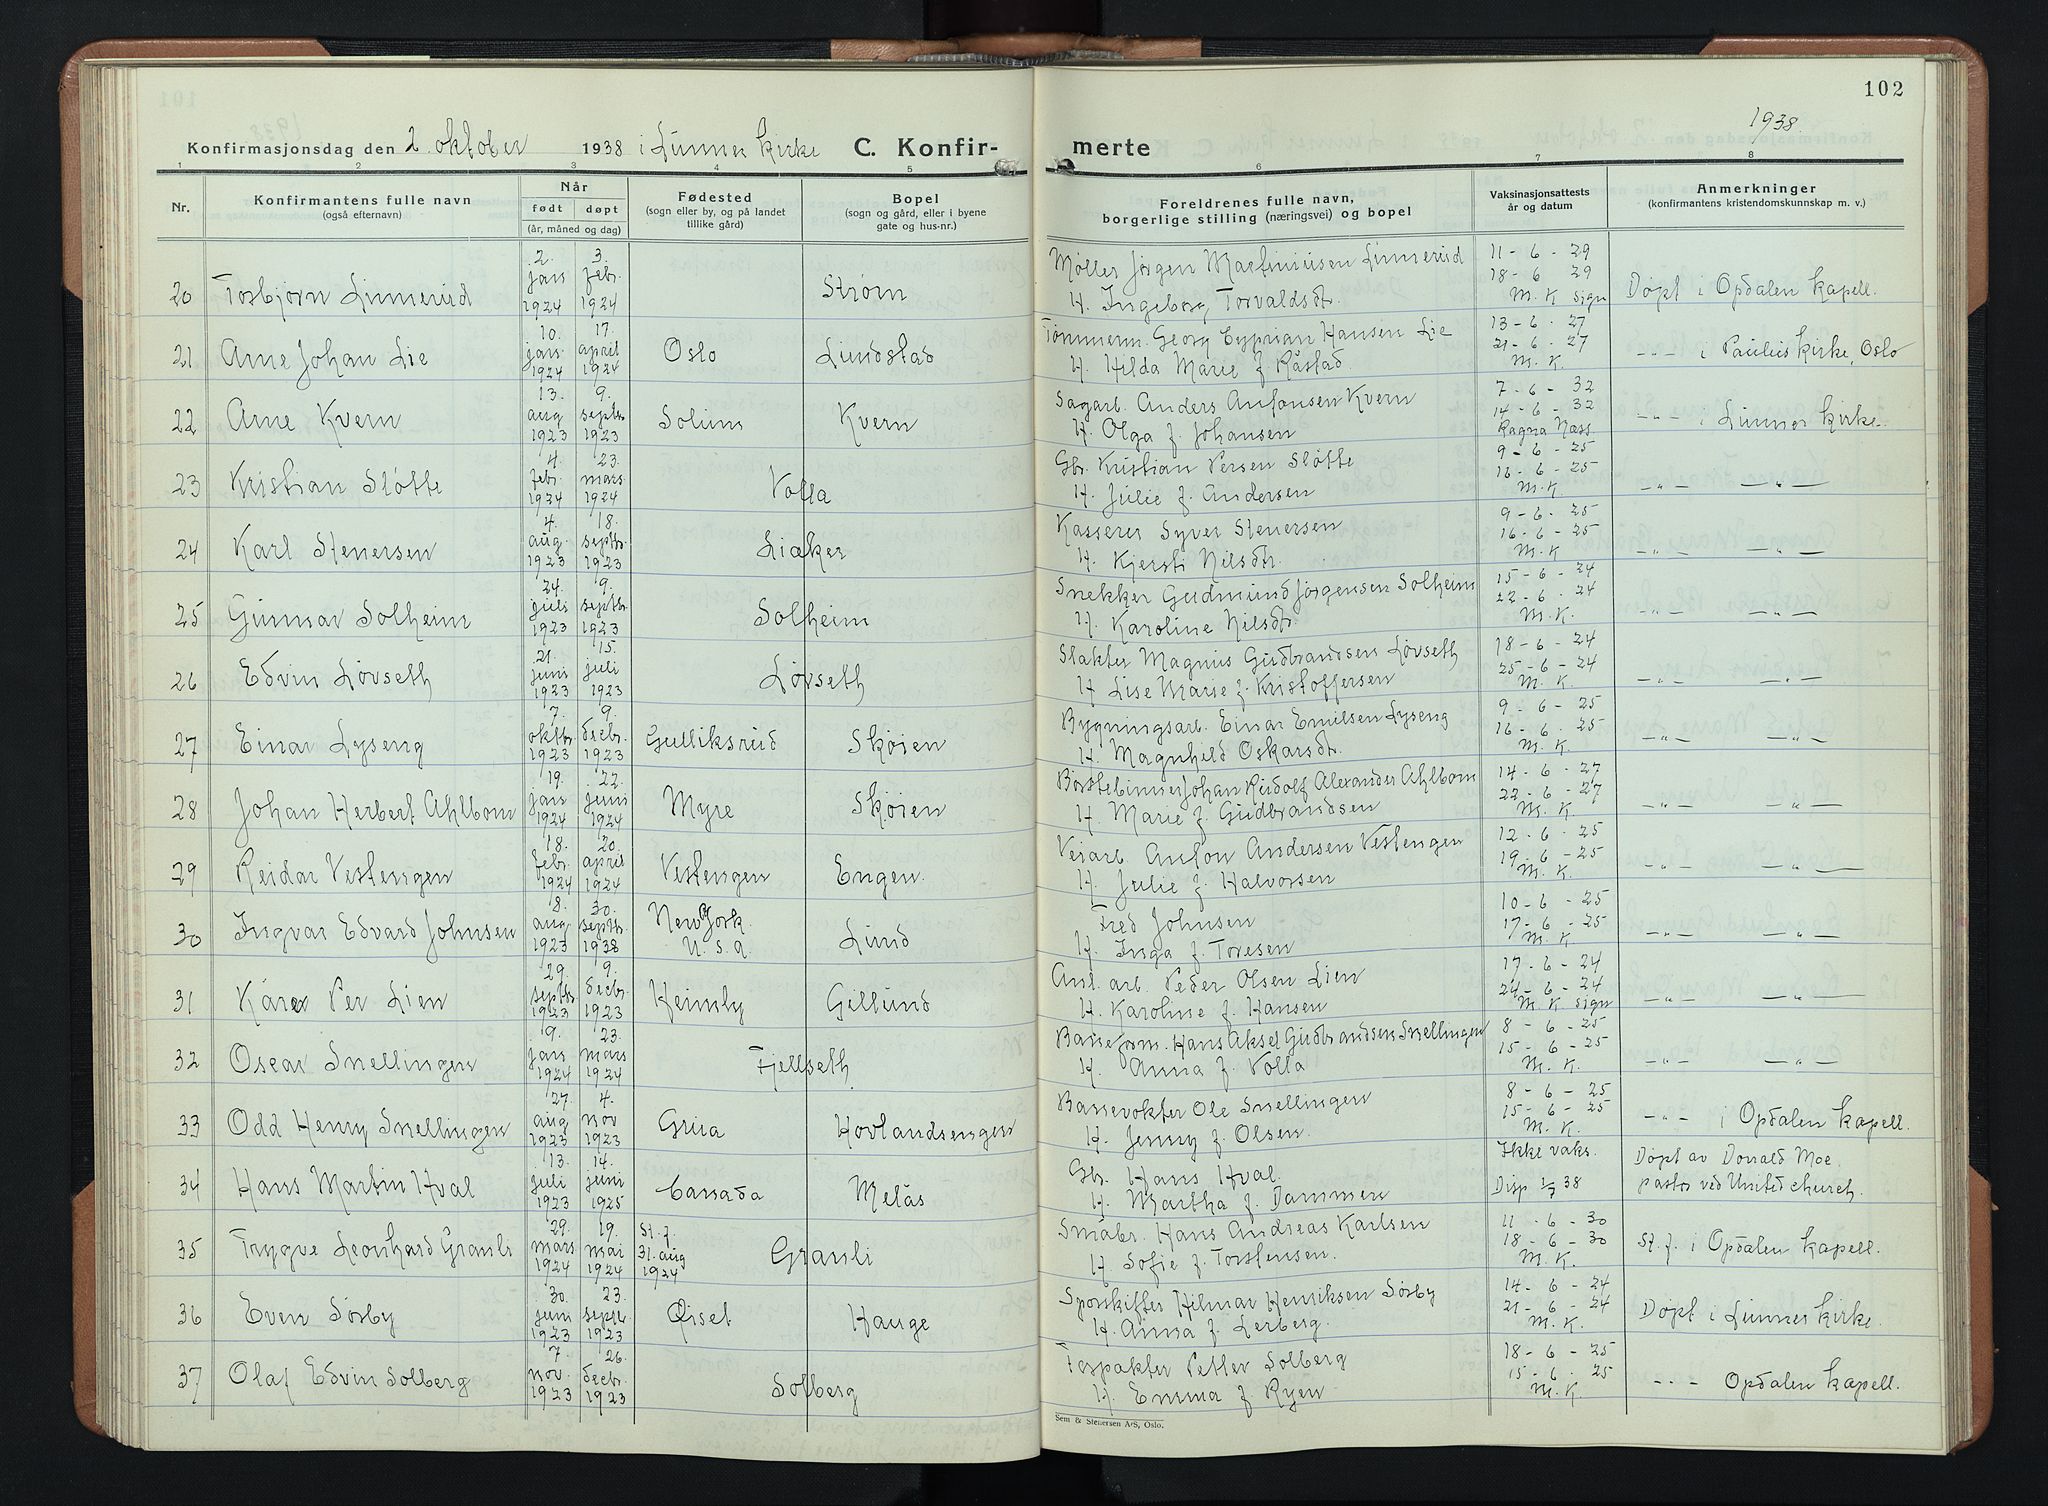 102
1938.
Konfirmasjonsdag den 2. oktober 1938 i Lunner kirke C. Konfir-
merte
1 2 3 4 5
6 7 8
Nr. Konfirmantens fulle navn (også efternavn) Når født døpt (år, måned og dag) Fødested (sogn eller by, og på landet tillike gård) Bopel (sogn og gård, eller i byene gate og hus-nr.)
Foreldrenes fulle navn, borgerlige stilling (næringsvei) og bopel Vaksinasjonsattests år og datum Anmerkninger (konfirmantens kristendomskunnskap m. v.)
20 Torbjørn Linnerud 2. jan 1924 3. febr. 1924 Strøm
Møller Jørgen Martiniusen Linnerud 11 - 6 - 29
H. Ingeborg Torvaldsdtr. 18 - 6 29 M. K sign Døpt i Opdalen kapell.
21 Arne Johan Lie 10. jan. 1924 17. april 1924 Oslo Lundstad
Tømmerm. Georg Cyprian Hansen Lie 13 - 6 - 27
H. Hilda Marie f. Råstad. 21 - 6 - 27 M. K. -"- i Paulus kirke, Oslo
22 Arne Kvern 13. aug 1923 9. septbr. 1923 Solum Kvern
Sagarb. Anders Antonsen Kvern 7 - 6 - 32
H. Olga f. Johansen 14 - 6 - 32 Ragna Næss -"- i Lunner kirke.
23 Kristian Sløtte 4. febr. 1924 23. mars 1924 Volla
Gbr. Kristian Persen Sløtte 9 - 6 - 25
H. Julie f. Andersen 16 - 6 - 25 M. K. -"- -"-
24 Karl Stenersen 4. aug. 1923 18. septbr. 1923 Liaker
Kasserer Syver Stenersen 9 - 6 - 25
H. Kjersti Nilsdtr. 16 - 6 - 25 M. K -"- -"-
25 Gunnar Solheim 24. juli 1923 9. septbr. 1923 Solheim
Snekker Gudmund Jørgensen Solheim 15 - 6 - 24
H. Karoline Nilsdtr. 22 - 6 - 24 M. K. -"- -"-
26 Edvin Løvseth 21. juni 1923 15. juli 1923 Løvseth
Slakter Magnus Gudbrandsen Løvseth 18 - 6 - 24
H. Lise Marie f. Kristoffersen 25 - 6 - 24 M. K. -"- -"-
27 Einar Lyseng 7. oktbr. 1923 9. decbr. 1923 Gulliksrud Skøien
Bygningsarb. Einar Emilsen Lyseng 9 - 6 - 25
H. Magnhild Oskarsdtr. 16 - 6 - 25 M. K. -"- -"-
28 Johan Herbert Ahlbom 19. jan 1924 22. juni 1924 Myre Skøien
Børstebinner Johan Rudolf Alexander Ahlbom 14 - 6 - 27
H. Marie f. Gudbrandsen 22 - 6 - 27 M. K. -"- -"-
29 Reidar Vestengen 18. febr. 1924 20. april 1924 Vestengen Engen.
Veiarb. Anton Andersen Vestengen 12 - 6 - 25
H. Julie f. Halvorsen 19 - 6 - 25 M. K. -"- -"-
30 Ingvar Edvard Johnsen 8. aug. 1923 30. septbr. 1938 New York U.S.A. Lund
Fred Johnsen 10 - 6 - 25
H. Inga f. Toresen 17 - 6 - 25 M. K. -"- -"-
31 Kåre Per Lien 29. septbr. 1923 9. decbr. 1923 Heimly Gillund
Anl. arb. Peder Olsen Lien 17 - 6 - 24
H. Karoline f. Hansen 24 - 6 - 24 M. K. sign -"- -"-
32 Oscar Snellingen 9. jan 1924 23. mars 1924 Fjellseth
Basseform. Hans Aksel Gudbrandsen Snellingen 8 - 6 - 25
H. Anna f. Volla 15 - 6 - 25 M. K. -"- -"-
33 Odd Henry Snellingen 27. aug 1923 4. nov 1923 Grua Hovlandsengen
Bassevokter Ole Snellingen 8 - 6 - 25
H. Jenny f. Olsen. 15 - 6 - 25 M. K. -"- i Opdalen kapell.
34 Hans Martin Hval 13. juli 1923 14. juni 1925 Canada Melås
Gbr. Hans Hval. Ikke vaks. Døpt av Donald Moe.
H. Martha f. Dammen Disp 1/7 38 pastor ved United church.
35 Trygve Leonhard Granli 29. mars 1924 19. mai 1924 St. f. 31. aug 1924 Granli
Småbr. Hans Andreas Karlsen 11 - 6 - 30
H. Sofie f. Torstensen. 18 - 6 - 30 M. K. St. f. i Opdalen kapell.
36 Even Sørby 30. juni 1923 23. septbr. 1923 Oiset Hauge
Sporskifter Hilmar Henriksen Sørby 14 - 6 - 24
H. Anna f. Lerberg. 21 - 6 - 24 M. K. Døpt i Lunner kirke.
37 Olaf Edvin Solberg 7. nov. 1923 26. decbr. 1923 Solberg
Forpakter Petter Solberg 18 - 6 - 25
H. Emma f. Ryen 15 - 6 - 25 M. K. -"- Opdalen kapell.
Sem & Stenersen A/S, Oslo.